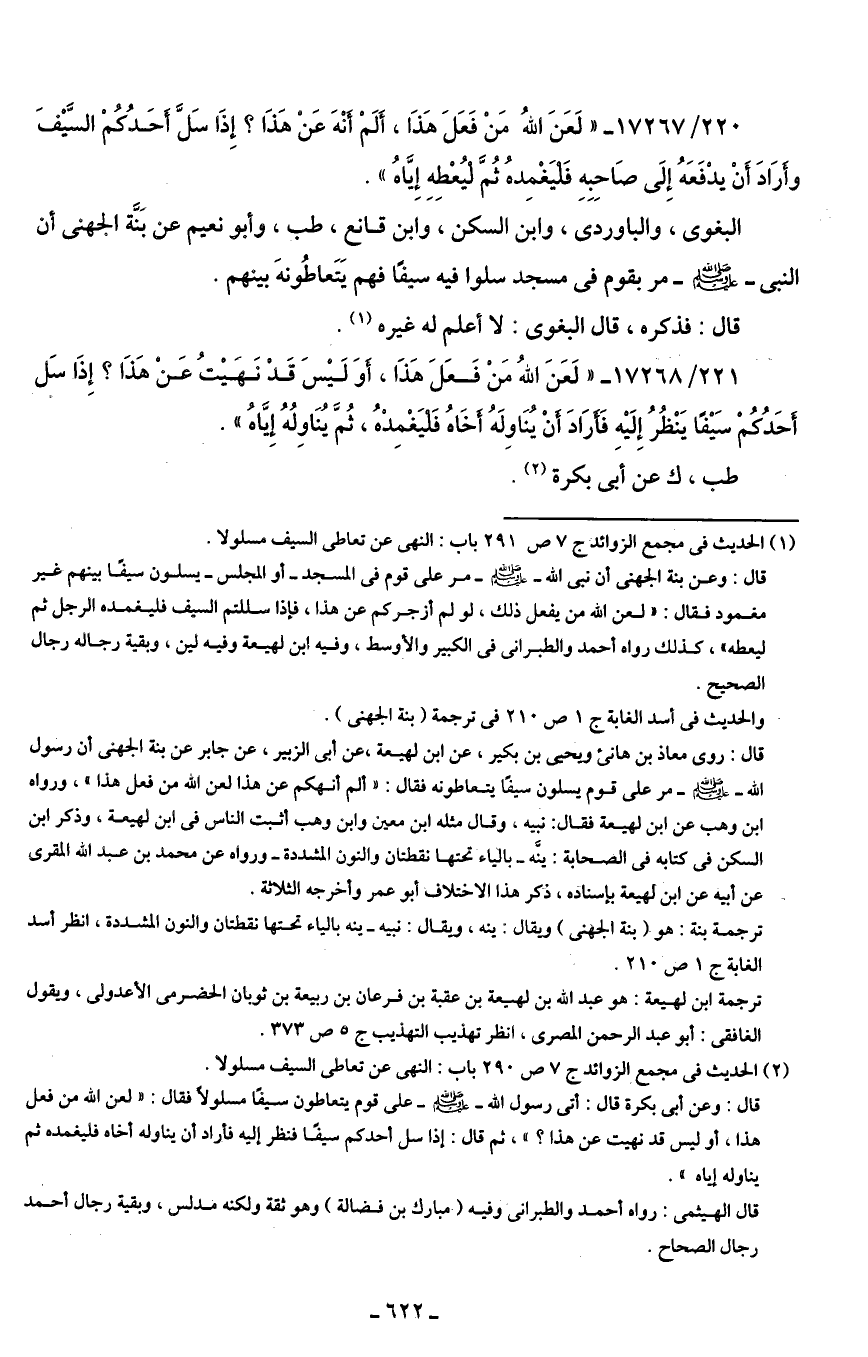 ١٧٢٦٧/٢٢٠ـ « لَعَنَ اللهُ مَنْ فَعَلَ هَذَا ، أَلَمْ أَنْهَ عَنْ هَذَا ؟ إِذَا سَلَّ أَحَدُكُمْ السَّيْفَ
وأَرَادَ أَنْ يدْفَعَهُ إِلَى صَاحِبِهِ فَلْيَغْمِدهُ ثُمَّ لْيُعْطِهِ إِيَّاهُ » .
البغوى ، والباوردى ، وابن السكن ، وابن قانع ، طب ، وأبو نعيم عن بَنَّة الجهنى أن
النبى ـ ﷺ ـ مر بقوم فى مسجد سلوا فيه سيفًا فهم يَتَعاطُونهَ بينهم .
قال : فذكره ، قال البغوى : لا أعلم له غيره (١) .
١٧٢٦٨/٢٢١ـ « لَعَنَ اللهُ مَنْ فَعَلَ هَذَا ، أَوَ لَيْسَ قَدْ نَهَيْتُ عَنْ هَذَا ؟ إِذَا سَل
أَحَدُكُمْ سَيْفًا يَنْظُرُ إِلَيْهِ فَأَرَادَ أَنْ يُنَاوِلَهُ أَخَاهُ فَلْيَغْمِدْهُ ، ثُمَّ يُنَاوِلُهُ إِيَّاهُ » .
طب ، ك عن أبى بكرة (٢) .
(١) الحديث فى مجمع الزوائد ج ٧ ص ٢٩١ باب : النهى عن تعاطى السيف مسلولا .
قال : وعن بنة الجهنى أن نبى الله ـ ﷺ ـ مر على قوم فى المسجد ـ أو المجلس ـ يسلون سيفًا بينهم غير
مغمود فقال : « لعن الله من يفعل ذلك ، لو لم أزجركم عن هذا ، فإذا سللتم السيف فليغمده الرجل ثم
ليعطه» ، كذلك رواه أحمد والطبرانى فى الكبير والأوسط ، وفيه ابن لهيعة وفيه لين ، وبقية رجاله رجال
الصحيح .
والحديث فى أسد الغابة ج ١ ص ٢١٠ فى ترجمة ( بنة الجهنى ) .
قال : روى معاذ بن هانئ ويحيى بن بكير ، عن ابن لهيعة ،عن أبى الزبير ، عن جابر عن بنة الجهنى أن رسول
الله ـ ﷺ ـ مر على قوم يسلون سيفًا يتعاطونه فقال : « ألم أنهكم عن هذا لعن الله من فعل هذا » ، ورواه
ابن وهب عن ابن لهيعة فقال: نبيه ، وقال مثله ابن معين وابن وهب أثبت الناس فى ابن لهيعة ، وذكر ابن
السكن فى كتابه فى الصحابة : ينَّه ـ بالياء تحتها نقطتان والنون المشددة ـ ورواه عن محمد بن عبد الله المقرى
عن أبيه عن ابن لهيعة بإسناده ، ذكر هذا الاختلاف أبو عمر وأخرجه الثلاثة .
ترجمة بنة : هو ( بنة الجهنى ) ويقال : ينه ، ويقال : نبيه ـ ينه بالياء تحتها نقطتان والنون المشددة ، انظر أسد
الغابة ج ١ ص ٢١٠ .
ترجمة ابن لهيعة : هو عبد الله بن لهيعة بن عقبة بن فرعان بن ربيعة بن ثوبان الحضرمى الأعدولى ، ويقول
الغافقى : أبو عبد الرحمن المصرى ، انظر تهذيب التهذيب ج ٥ ص ٣٧٣ .
(٢) الحديث فى مجمع الزوائد ج ٧ ص ٢٩٠ باب : النهى عن تعاطى السيف مسلولا .
قال : وعن أبى بكرة قال : أتى رسول الله ـ ﷺ ـ على قوم يتعاطون سيفًا مسلولاً فقال : « لعن الله من فعل
هذا ، أو ليس قد نهيت عن هذا ؟ » ، ثم قال : إذا سل أحدكم سيفًا فنظر إليه فأراد أن يناوله أخاه فليغمده ثم
يناوله إياه » .
قال الهيثمى : رواه أحمد والطبرانى وفيه ( مبارك بن فضالة ) وهو ثقة ولكنه مدلس ، وبقية رجال أحمد
رجال الصحاح .
ـ ٦٢٢ ـ